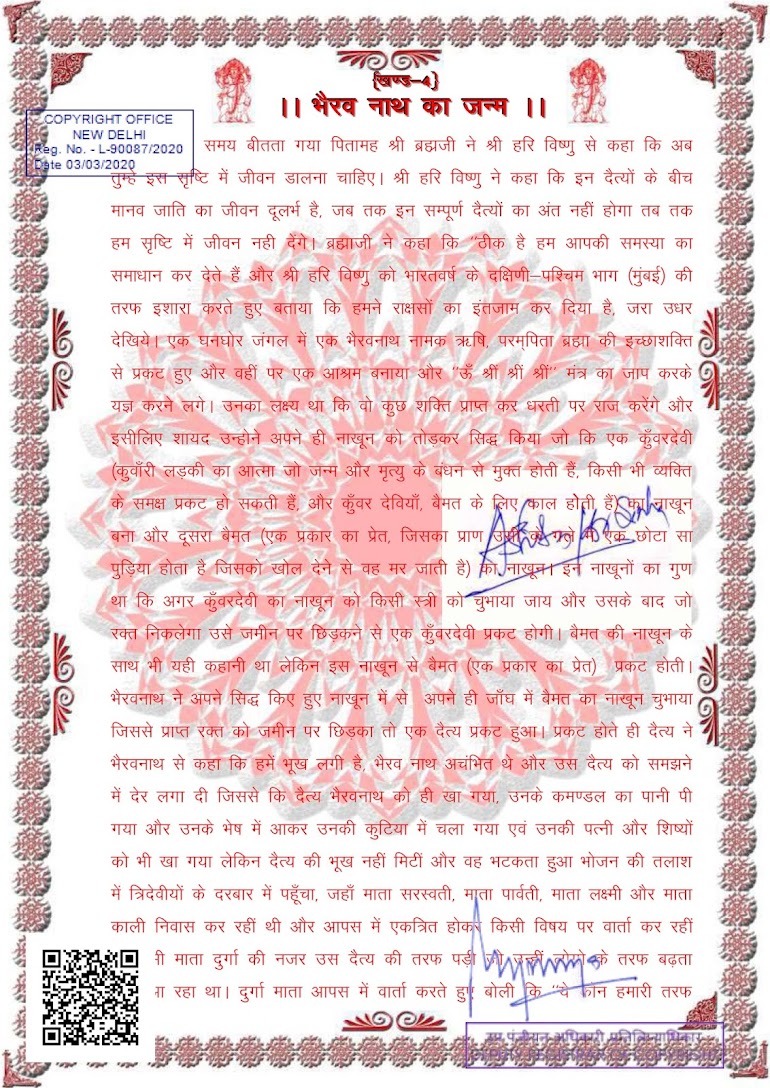 {खण्ड–4}
।। भैरव नाथ का जन्म ।।
COPYRIGHT OFFICE
NEW DELHI
Reg. No. - L-90087/2020
Date 03/03/2020
समय बीतता गया पितामह श्री ब्रह्मजी ने श्री हरि विष्णु से कहा कि अब
तुम्हे इस सृष्टि में जीवन डालना चाहिए। श्री हरि विष्णु ने कहा कि इन दैत्यों के बीच
मानव जाति का जीवन दूलर्भ है, जब तक इन सम्पूर्ण दैत्यों का अंत नहीं होगा तब तक
हम सृष्टि में जीवन नही देंगे। ब्रह्माजी ने कहा कि ‘‘ठीक है हम आपकी समस्या का
समाधान कर देते हैं और श्री हरि विष्णु को भारतवर्ष के दक्षिणी–पश्चिम भाग (मुंबई) की
तरफ इशारा करते हुए बताया कि हमने राक्षसों का इंतजाम कर दिया है, जरा उधर
देखिये। एक घनघोर जंगल में एक भैरवनाथ नामक ऋषि, परमपिता ब्रह्मा की इच्छाशक्ति
से प्रकट हुए और वहीं पर एक आश्रम बनाया और ‘‘ऊँ श्रीं श्रीं श्रीं’’ मंत्र का जाप करके
यज्ञ करने लगे। उनका लक्ष्य था कि वो कुछ शक्ति प्राप्त कर धरती पर राज करेंगे और
इसीलिए शायद उन्होने अपने ही नाखून को तोड़कर सिद्ध किया जो कि एक कुँवरदेवी
(कुवाँरी लड़की का आत्मा जो जन्म और मृत्यु के बंधन से मुक्त होती हैं, किसी भी व्यक्ति
के समक्ष प्रकट हो सकती हैं, और कुँवर देवियाँ, बैमत के लिए काल होती हैं) का नाखून
बना और दूसरा बैमत (एक प्रकार का प्रेत, जिसका प्राण उसी के गले में एक छोटा सा
पुड़िया होता है जिसको खोल देने से वह मर जाती है) का नाखून। इन नाखूनों का गुण
था कि अगर कुँवरदेवी का नाखून को किसी स्त्री को चुभाया जाय और उसके बाद जो
रक्त निकलेगा उसे जमीन पर छिड़कने से एक कुँवरदेवी प्रकट होगी। बैमत की नाखून के
साथ भी यही कहानी था लेकिन इस नाखून से बैमत (एक प्रकार का प्रेत) प्रकट होती।
भैरवनाथ ने अपने सिद्ध किए हुए नाखून में से अपने ही जाँघ में बैमत का नाखून चुभाया
जिससे प्राप्त रक्त को जमीन पर छिड़का तो एक दैत्य प्रकट हुआ। प्रकट होते ही दैत्य ने
भैरवनाथ से कहा कि हमें भूख लगी है, भैरव नाथ अचंभित थे और उस दैत्य को समझने
में देर लगा दी जिससे कि दैत्य भैरवनाथ को ही खा गया, उनके कमण्डल का पानी पी
गया और उनके भेष में आकर उनकी कुटिया में चला गया एवं उनकी पत्नी और शिष्यों
को भी खा गया लेकिन दैत्य की भूख नहीं मिटीं और वह भटकता हुआ भोजन की तलाश
में त्रिदेवीयों के दरबार में पहूँचा, जहाँ माता सरस्वती, माता पार्वती, माता लक्ष्मी और माता
काली निवास कर रहीं थी और आपस में एकत्रित होकर किसी विषय पर वार्ता कर रहीं
माता दुर्गा की नजर उस दैत्य की तरफ पड़ी जो उन्हीं लोगो के तरफ बढ़ता
रहा था। दुर्गा माता आपस में वार्ता करते हुए बोली कि ‘‘ये कौन हमारी तरफ
उप पंजीयन अधिकारी
DEPUTY REGISTRAR OF COPYRIGHTS